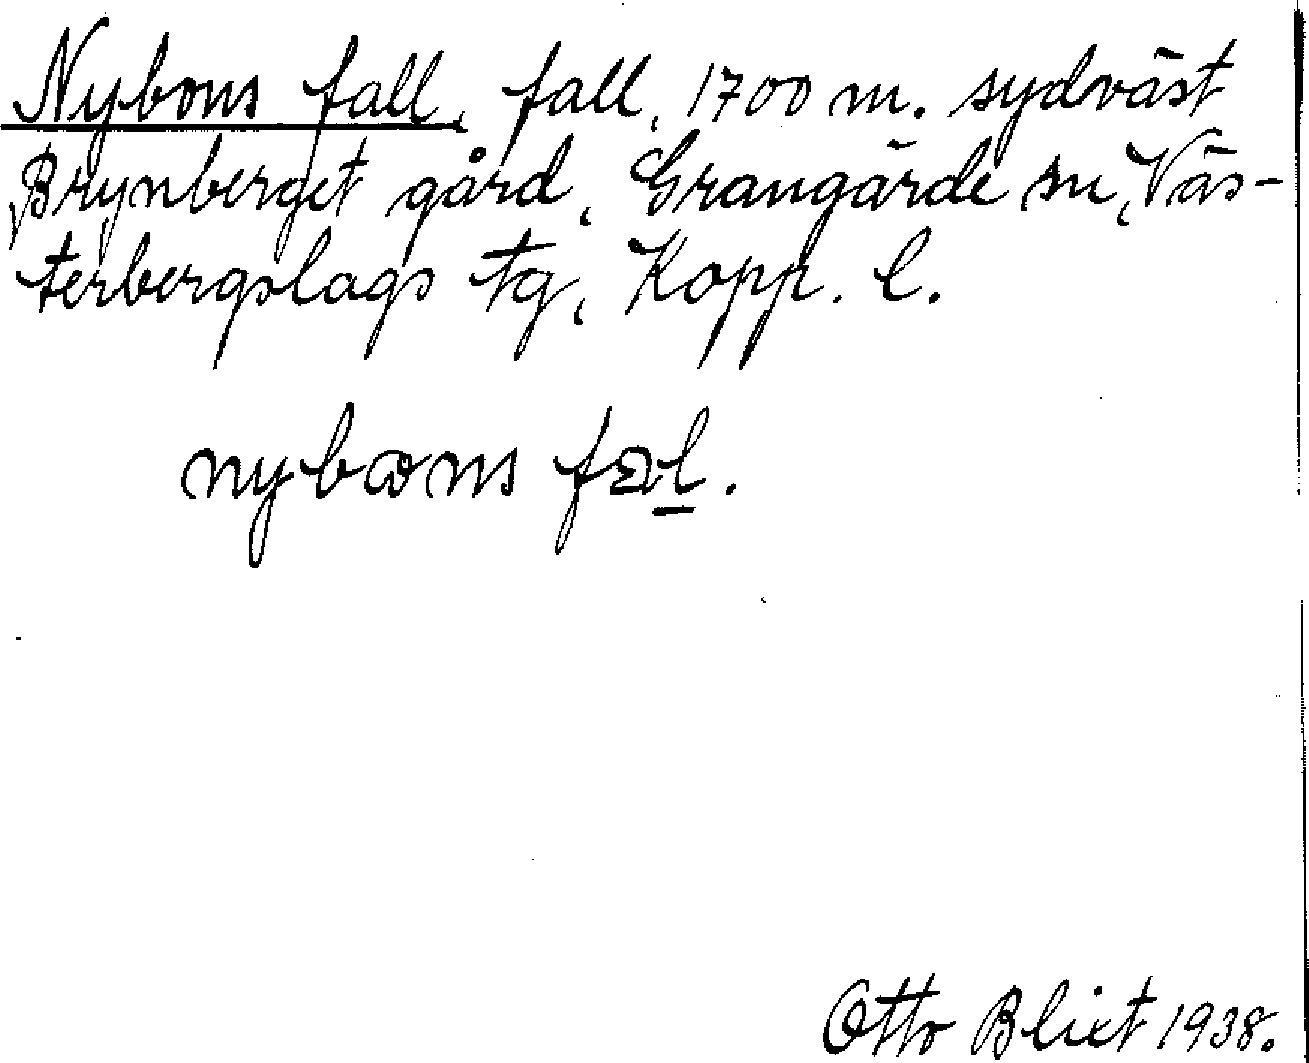 Nybons fall, fall, 1700 m. sydväst
Brynberget gård, Grangärde sn, Väs-
terbergslags tg, Kopp. l.
nybons fal.
Otto Blixt 1938.